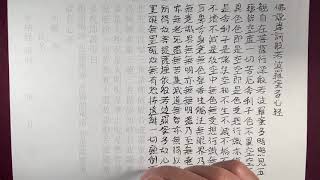 佛說摩訶般若波羅蜜多心經
觀自在菩薩行深般若波羅蜜多時照見五
蘊皆空度一切苦厄舍利子色不異空空不
異色色即是空空即是色受想行識亦復如
是舍利子是諸法空相不生不滅不垢不淨
不增不減是故空中無色無受想行識無眼
耳鼻舌身意無色聲香味觸法無眼界乃至
無意識界無無明亦無無明盡乃至無老死
亦無老死盡無苦集滅道無智亦無得以無
所得故菩提薩埵依般若波羅蜜多故心無
罣礙無罣礙故無有恐怖遠離一切顛倒